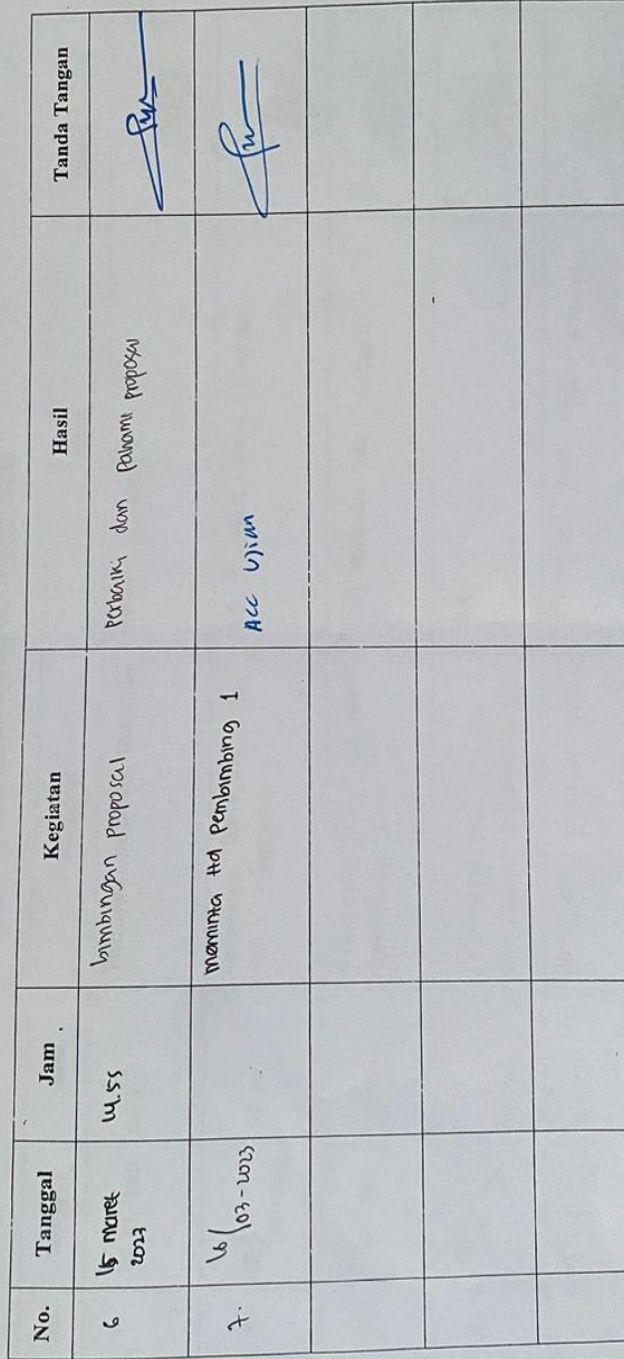 No. Tanggal Jam Kegiatan Hasil Tanda Tangan
6 15 maret 14.55 bimbingan proposal Perbaiki dan pahami proposal
2023
7. 16/03-2023 meminta ttd Pembimbing 1 Acc Ujian